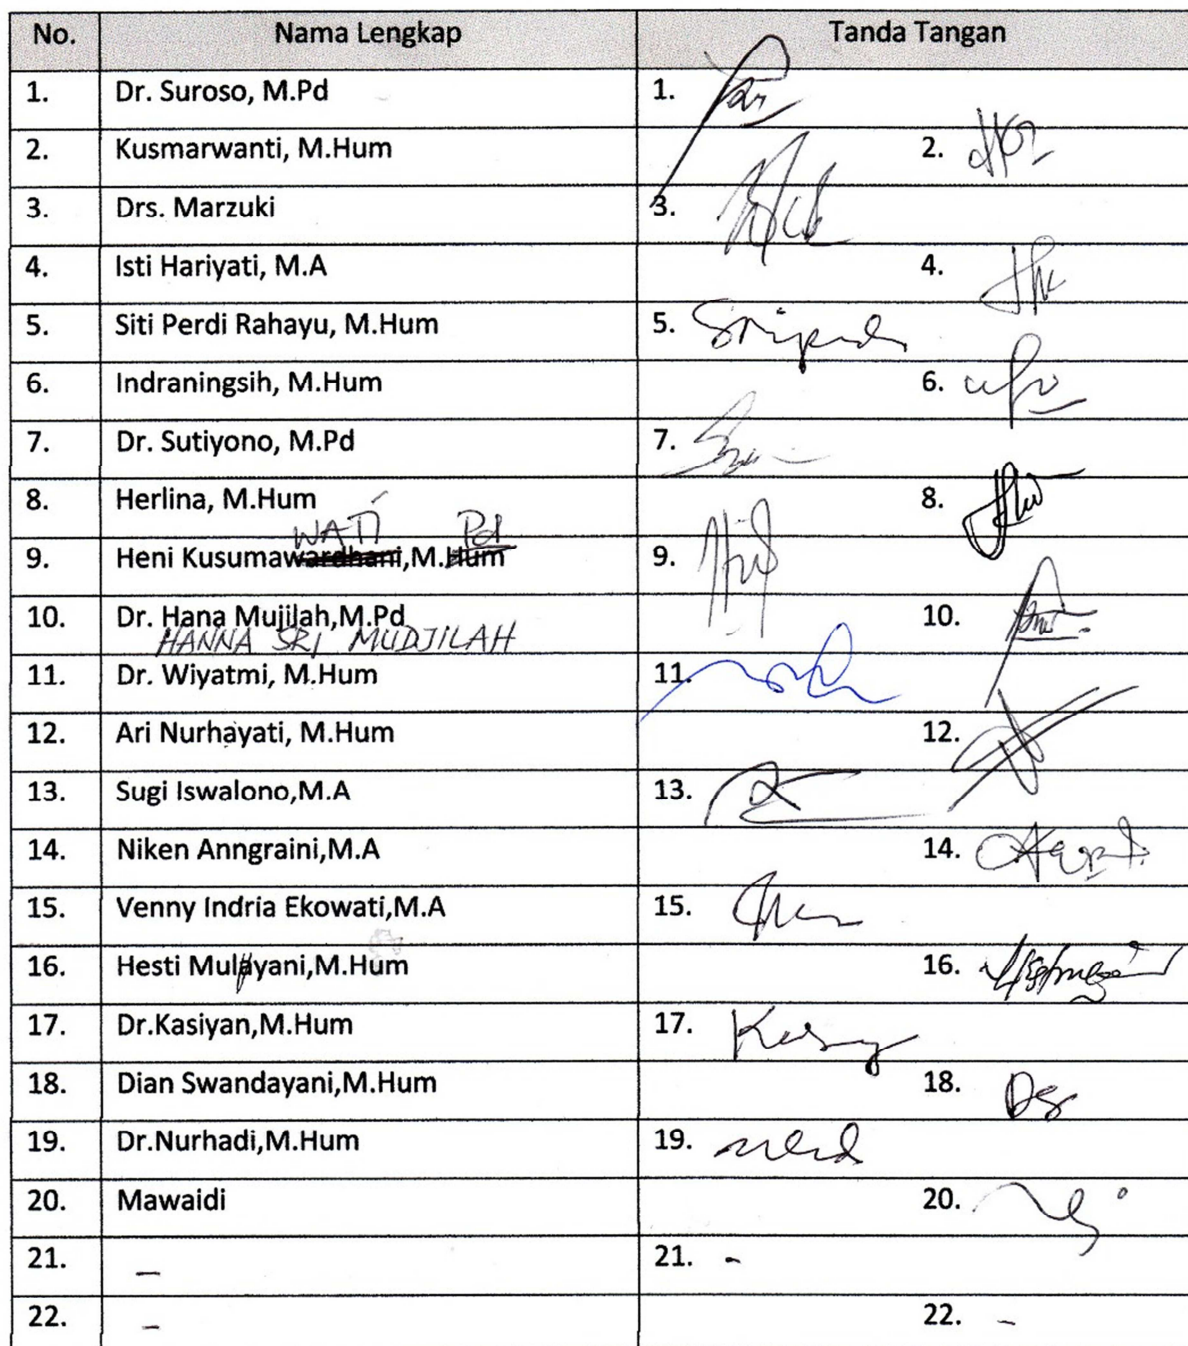 No. Nama Lengkap Tanda Tangan
1. Dr. Suroso, M.Pd 1.
2. Kusmarwanti, M.Hum 2.
3. Drs. Marzuki 3.
4. Isti Hariyati, M.A 4.
5. Siti Perdi Rahayu, M.Hum 5.
6. Indraningsih, M.Hum 6.
7. Dr. Sutiyono, M.Pd 7.
8. Herlina, M.Hum 8.
WATI Pd
9. Heni Kusumawardhani,M.Hum 9.
10. Dr. Hana Mujilah,M.Pd 10.
HANNA SRI MUDJILAH
11. Dr. Wiyatmi, M.Hum 11.
12. Ari Nurhayati, M.Hum 12.
13. Sugi Iswalono,M.A 13.
14. Niken Anngraini,M.A 14.
15. Venny Indria Ekowati,M.A 15.
16. Hesti Mulayani,M.Hum 16.
17. Dr.Kasiyan,M.Hum 17.
18. Dian Swandayani,M.Hum 18.
19. Dr.Nurhadi,M.Hum 19.
20. Mawaidi 20.
21. – 21. -
22. – 22. -